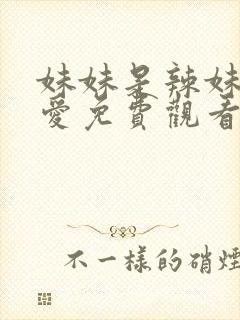 妹妹是辣妹
愛免費觀看
不一樣的硝煙